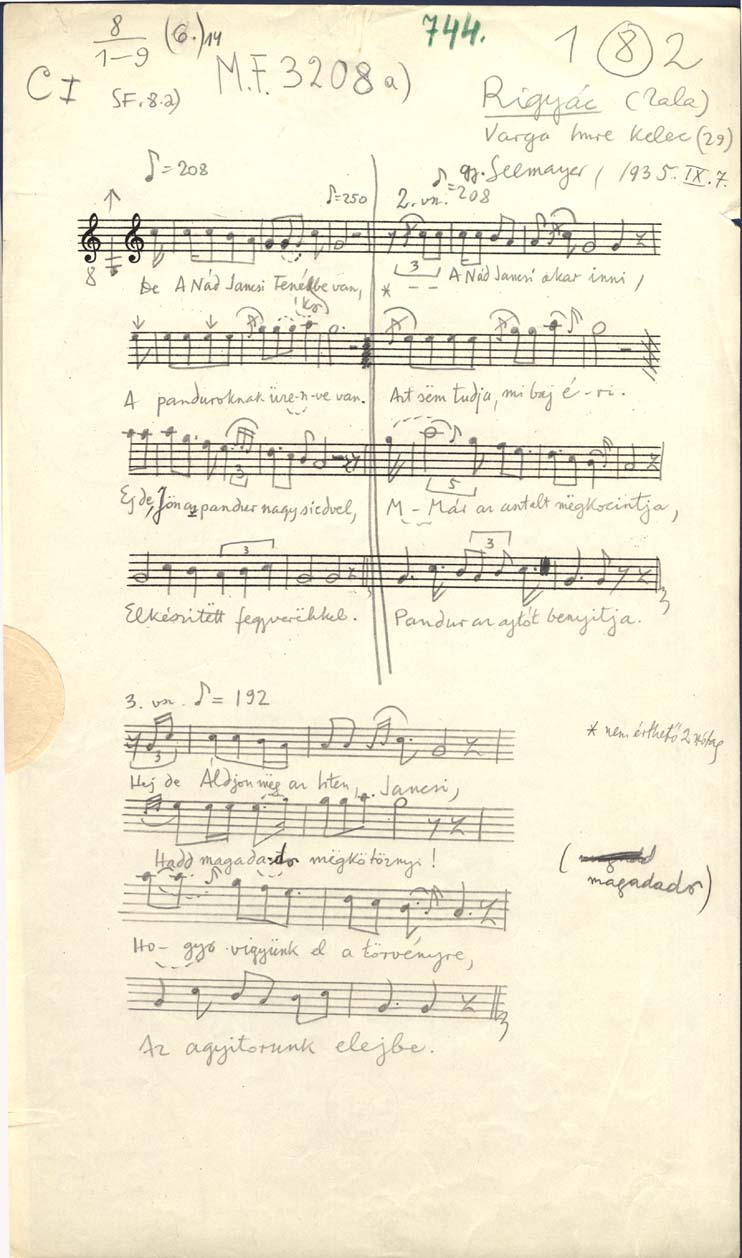 8
1-9 (6.) 14
744.
1 8 2
C I
SF. 8.a)
M.F. 3208 a)
Rigyác (Zala)
Varga Imre Kelec (29)
gy. Seemayer, 1935. IX. 7.
♪=208
♪=250
2. vsz. ♪=208
8
De A Nád Jancsi van,
3
* - - A Nád Jancsi akar inni,
A panduroknak üze-n-ve van.
Azt sëm tudja, mi baj é-ri.
3
Ej de, Jön az pandur nagy
5
M - Már az asztalt mëgkocintja,
3
Elkészitëtt fegyverëkkel.
3
Pandur az ajtót benyitja.
3. vsz. ♪= 192
* nem érthető 2 szótag
3
Hej de Áldjon mëg az Isten, Jancsi,
Hadd magadado mëgkötöznyi!
(
magadado)
Ho- gyo vigyünk el a törvényre,
Az agyitorunk elejbe.